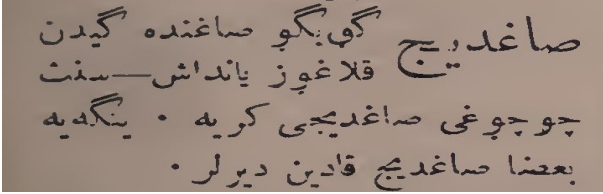 صاغدیج گویگو صاغنده گیدن
قلاغوز یانداش — سنت
چوجوغی صاغدیجی کریه · ینگه‌یه
بعضا صاغدیج قادین دیرلر ·